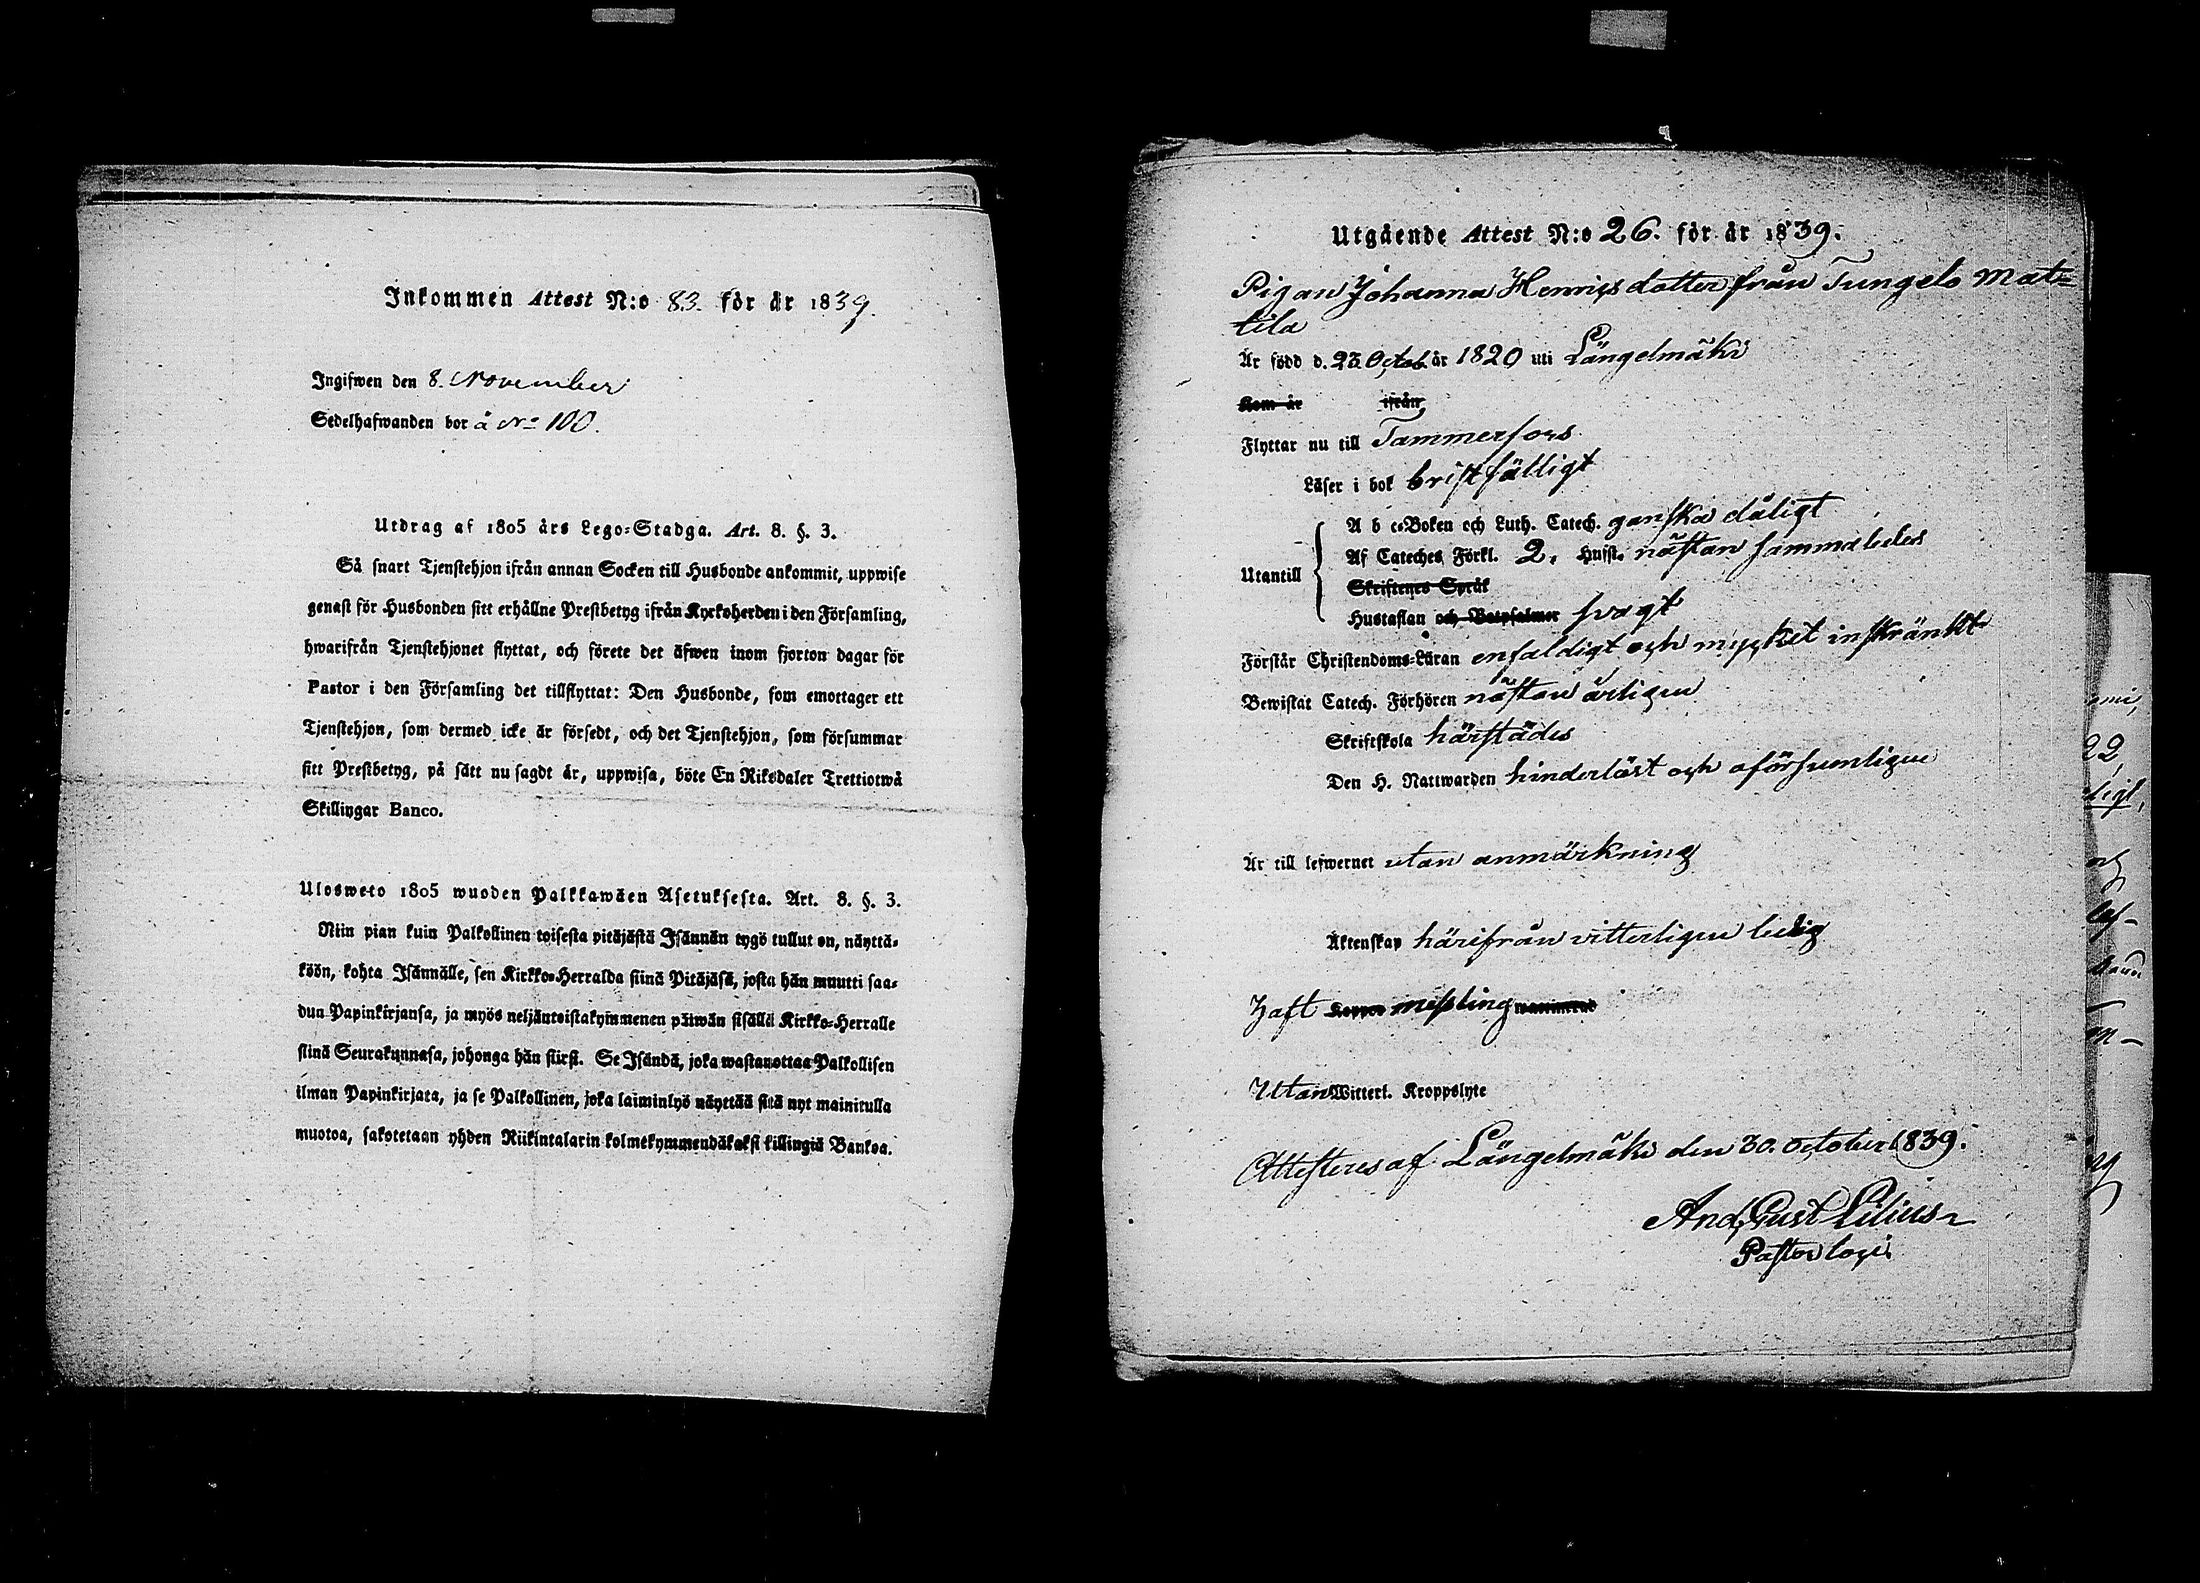 Inkommen Attest N:o 83. för år 1839.
Ingifwen den 8. November
Sedelhafwanden bor å No 100.
Utdrag af 1805 års Lego-Stadga. Art. 8. §. 3.
Så snart Tjenstehjon ifrån annan Socken till Husbonde ankommit, uppwise
genast för Husbonden sitt erhållne Prestbetyg ifrån Kyrkoherden i den Församling,
hwarifrån Tjenstehjonet flyttat, och förete det äfwen inom fjorton dagar för
Pastor i den Församling det tillflyttat: Den Husbonde, som emottager ett
Tjenstehjon, som dermed icke är försedt, och det Tjenstehjon, som försummar
sitt Prestbetyg, på sätt nu sagdt är, uppwisa, böte En Riksdaler Trettiotwå
Skillingar Banco.
Ulosweto 1805 wuoden Palkkawäen Asetuksesta. Art. 8. §. 3.
Niin pian kuin Palkollinen toisesta pitäjästä Isännän tygö tullut on, näyttä-
köön, kohta Isännälle, sen Kirkko-Herralda siinä Pitäjäsä, josta hän muutti saa-
dun Papinkirjansa, ja myös neljäntoistakymmenen päiwän sisällä Kirkko-Herralle
siinä Seurakunnasa, johonga hän siirsi. Se Isändä, joka wastanottaa Palkollisen
ilman Papinkirjata, ja se Palkollinen, joka laiminlyö näyttää sitä nyt mainitulla
muotoa, sakotetaan yhden Riikintalarin kolmekymmendäkaksi killingiä Bankoa.
Utgående Attest N:o 26. för år 1839.
Pigan Johanna Henricsdotter från Tungelo Mat-
tila
Är född d. 23 Octob. år 1820 uti Längelmäki
Kom år ifrån
Flyttar nu till Tammerfors
Läser i bok bristfälligt
A b c-Boken och Luth. Catech. ganska dåligt
Af Cateches Förkl. 2. Hufst. nästan sammaledes
Utantill
Skriftenes Språk
Hustaflan och Botpsalmer svagt
Förstår Christendoms-Läran enfaldigt och mycket inskränkt
Bewistat Catech. Förhören nästan årligen
Skriftskola härstädes
Den H. Nattwarden hinderlöst och oförsumligen
Är till lefwernet utan anmärkning
Äktenskap härifrån vitterligen ledig
Haft Koppor messling waccinerad
Utan Witterl. Kroppslyte
Attesteras af Längelmäki den 30. October 1839.
And. Gust Lilius
Pastor loci